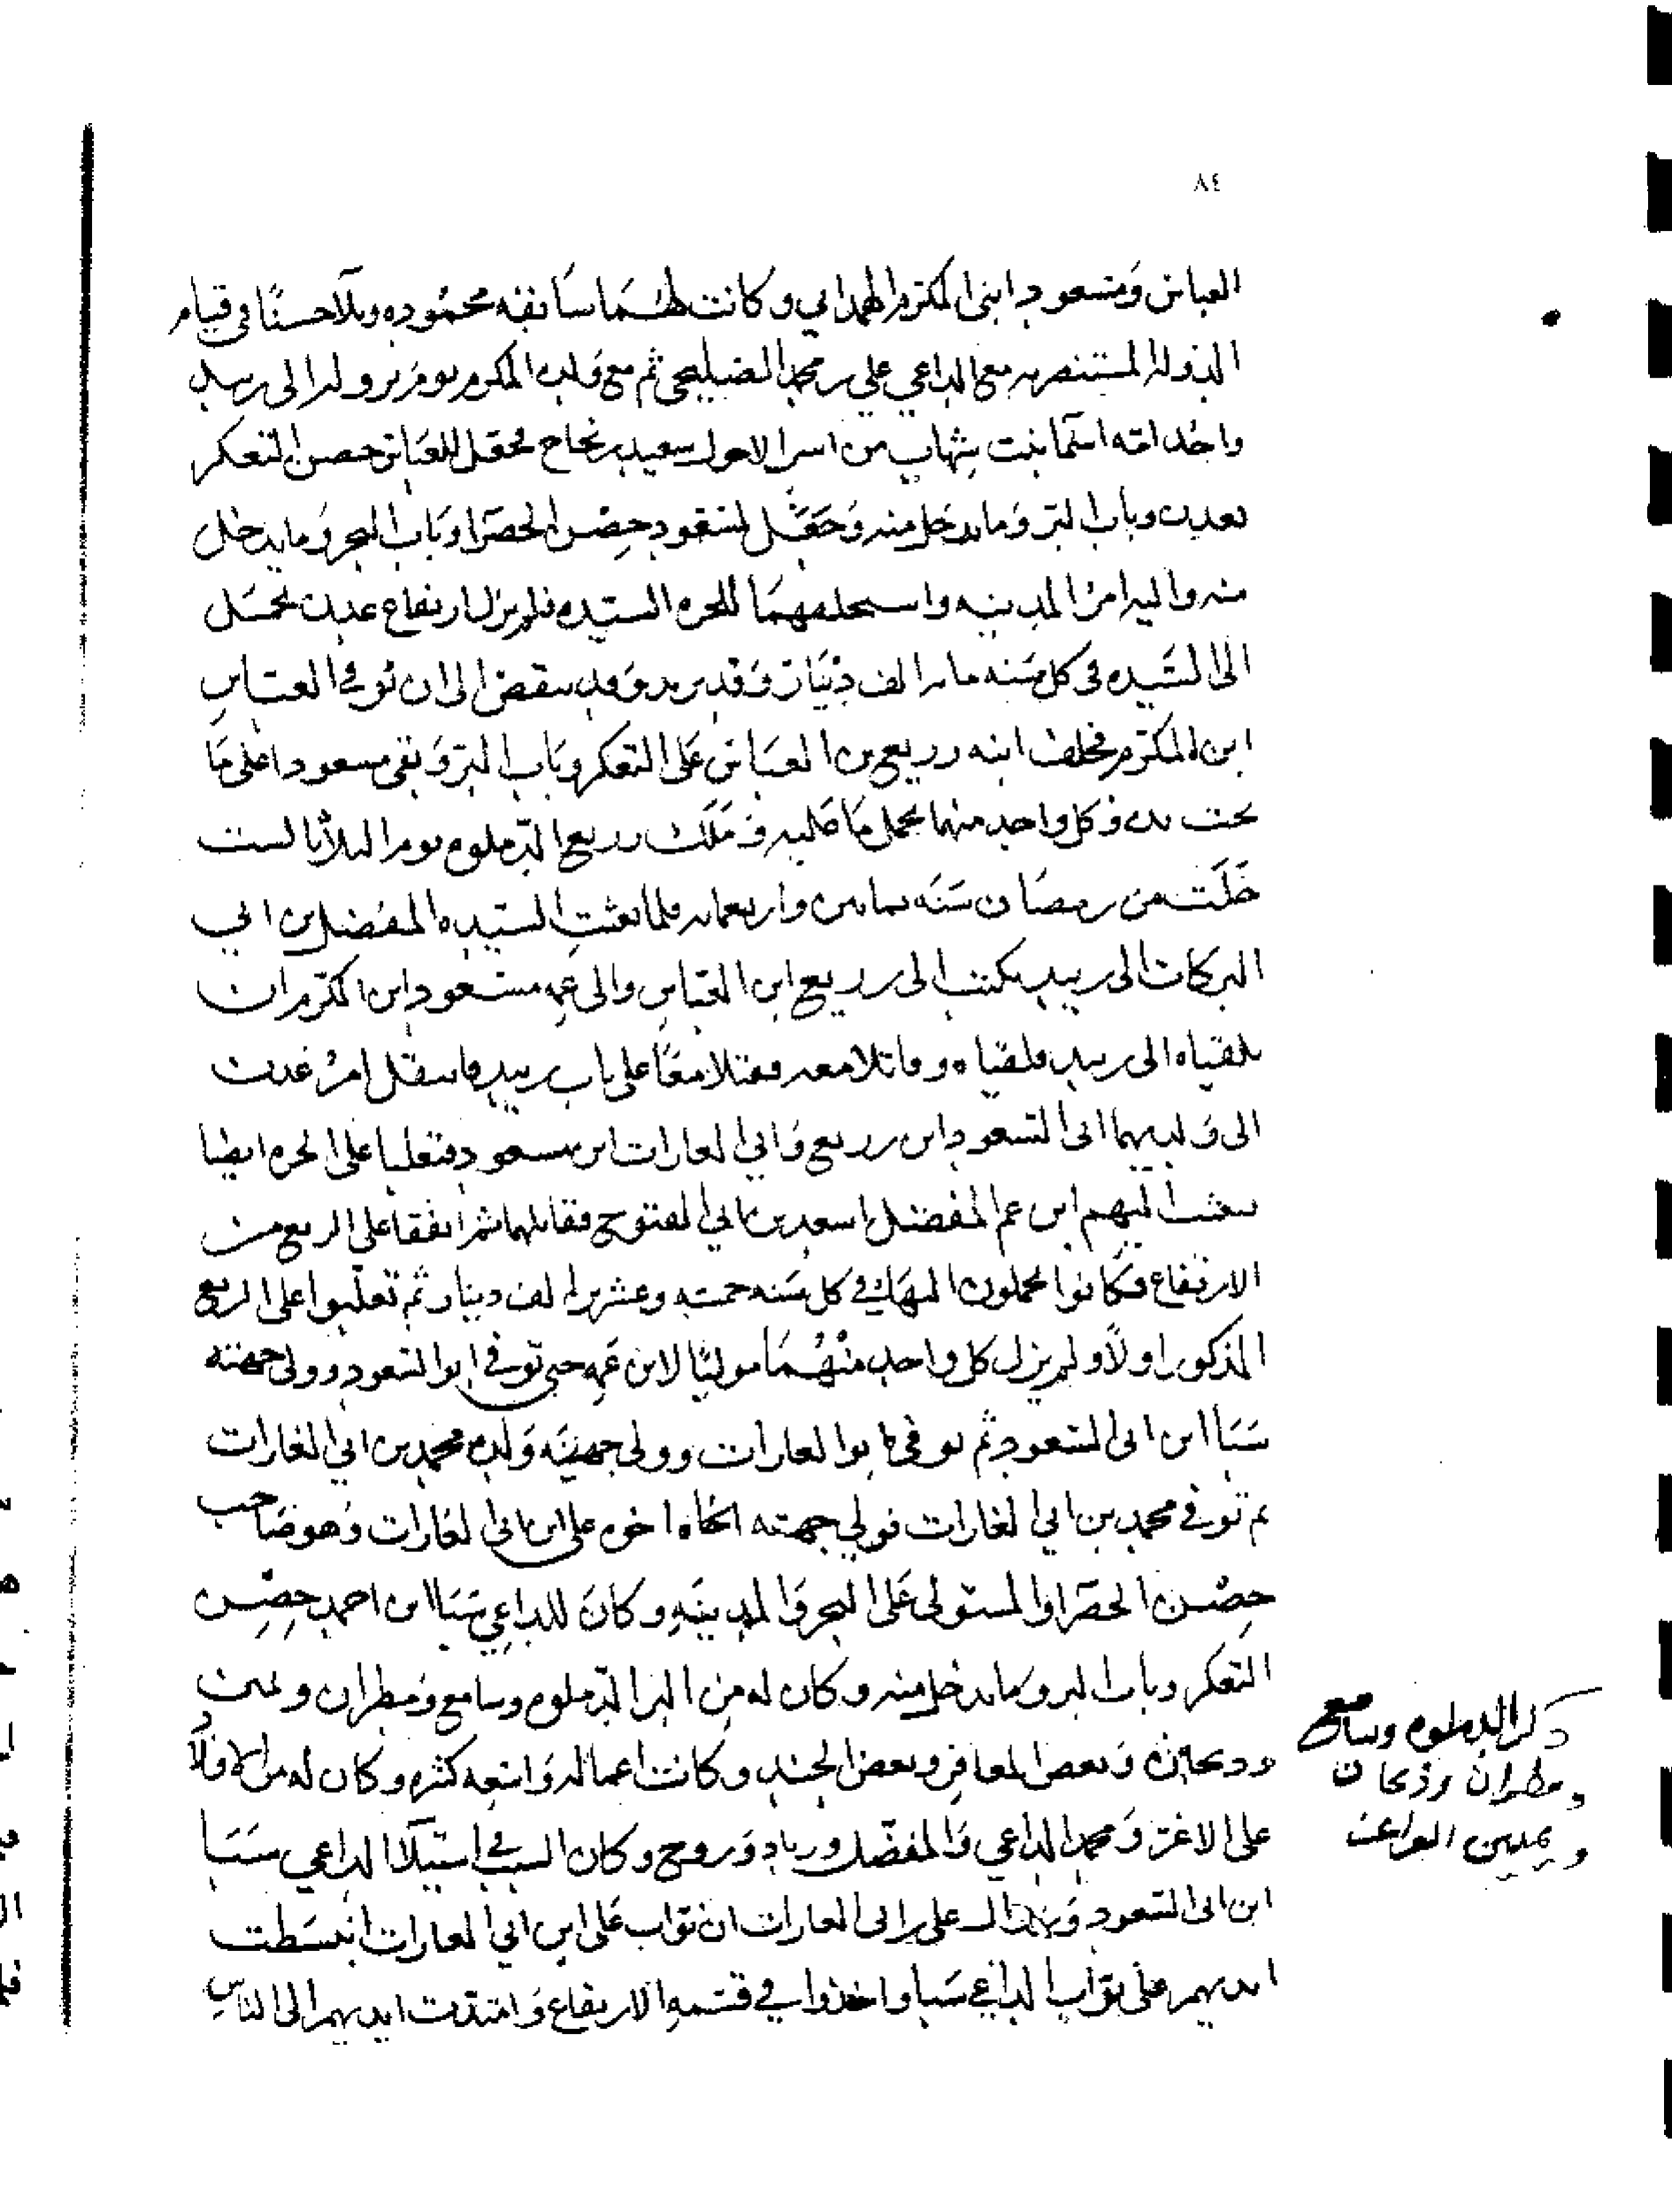 ٨٤
العباس ومسعود ابنى المكرم الهمداني وكانت لهما سابقه محموده وبلآ حسنًا في قيام
الدوله المستنصريه مع الداعي علي بن محمد الصليحي ثم مع ولده المكرم يوم نزوله الى زبيد
واخذ امه اسما بنت شهاب من اسر الاحول سعيد بن نجاح فجعل للعباس حصن التعكر
بعدن وباب البر وما يدخل منه وجعل لمسعود حصن الخضرا وباب البحر وما يدخل
منه واليه امر المدينه واستحلفهما للحره السيده فلم يزل ارتفاع عدن يحمل
الى السيده في كل سنه مايه الف دينار وقد يزيد وقد ينقص الى ان توفي العباس
ابن المكرم فخلف ابنه زريع بن العباس على التعكر وباب البر وبقي مسعود اعلى ما
تحت يده وكل واحد منهما يحمل ما عليه وملك زريع الدملوه يوم الثلاثا لست
خلت من رمضان سنه ثمانين واربعمايه فلما بعثت السيده المفضل بن ابي
البركات الى زبيد كتبت الى زريع ابن العباس والى عمه مسعود ابن المكرم ان
يلقياه الى زبيد فلقياه وقاتلا معه فقتلا معًا على باب زبيد فانتقل امر عدن
الى ولديهما ابى السعود ابن زريع وابي الغارات ابن مسعود فتغلبا على الحره ايضا
فبعثت اليهم ابن عم المفضل اسعد بن ابي الفتوح فقاتلهما ثم اتفقا على الربع من
الارتفاع فكانوا يحملون اليها في كل سنه خمسه وعشرين الف دينار ثم تغلبوا على الربع
المذكور اولًا ولم يزل كل واحد منهما موليًا لابن عمه حتى توفي ابو السعود وولى جهته
سبا ابن ابى السعود ثم توفي ابو الغارات وولى جهته ولده محمد بن ابي الغارات
ثم توفي محمد بن ابي الغارات فولي جهته اخاه اخوه على ابن ابى الغارات وهو صاحب
حصن الخضرا والمستولى على البحر والمدينه وكان للداعي سبا ابن احمد حصن
التعكر وباب البر وما يدخل منه وكان له من البر الدملوه وسامع ومطران ويمين
وذبحان وبعض المعافر وبعض الجند وكانت اعماله واسعه كثيره وكان له من الاولاد
على الاغر ومحمد الداعي والمفضل وزياد وروح وكان السبب في استيلا الداعي سبا
ابن ابى السعود وزوال علي بن ابى الغارات ان نواب على ابن ابي الغارات انبسطت
ايديهم على نواب الداعي سبا واخذوا في قسمه الارتفاع وامتدت ايديهم الى الناس
ذكر الدملوه وسامع
ومطران وذبحان
ويمين